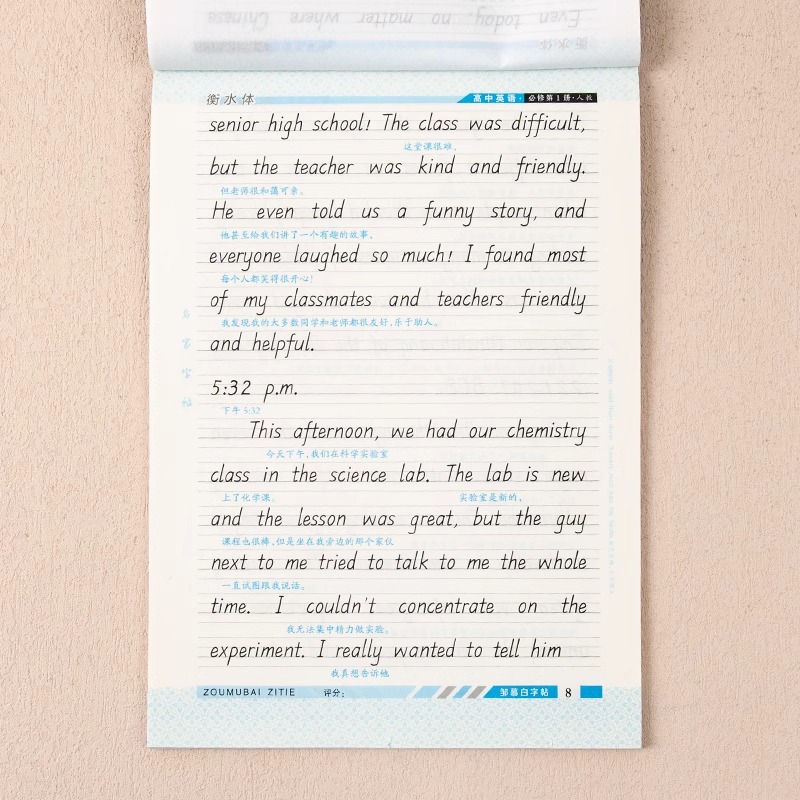 Even today, no matter where Chinese
衡水体
衡水体
高中英语·必修第1册·人教
senior high school! The class was difficult,
这堂课很难,
but the teacher was kind and friendly.
但老师很和蔼可亲。
He even told us a funny story, and
他甚至给我们讲了一个有趣的故事,
everyone laughed so much! I found most
每个人都笑得很开心!
of my classmates and teachers friendly
我发现我的大多数同学和老师都很友好,乐于助人。
and helpful.
5:32 p.m.
下午 5:32
This afternoon, we had our chemistry
今天下午,我们在科学实验室
class in the science lab. The lab is new
上了化学课。 实验室是新的,
and the lesson was great, but the guy
课程也很棒,但是坐在我旁边的那个家伙
next to me tried to talk to me the whole
一直试图跟我说话。
time. I couldn't concentrate on the
我无法集中精力做实验。
experiment. I really wanted to tell him
我真想告诉他
ZOUMUBAI ZITIE 评分: 邹慕白字帖 8